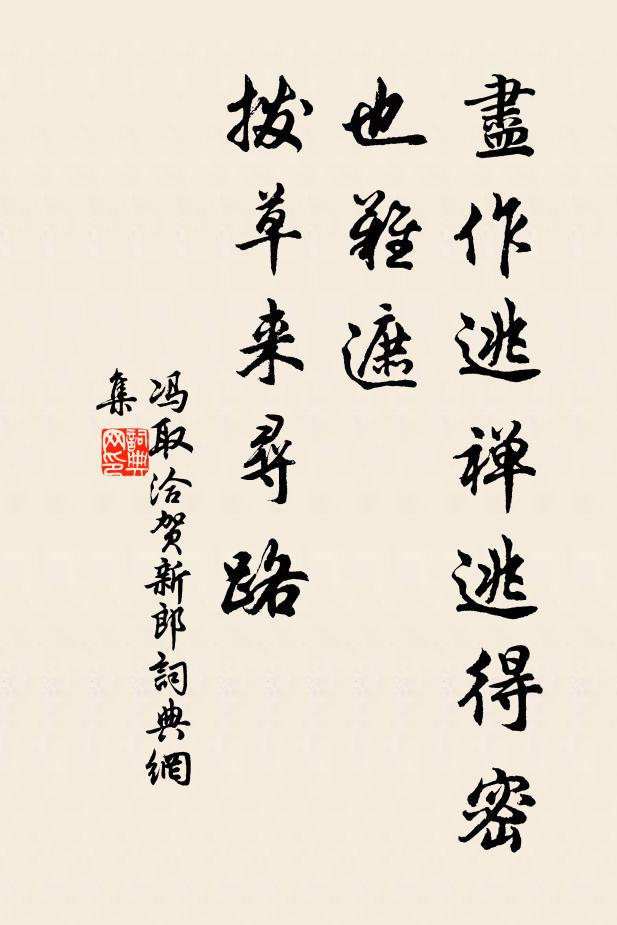 盡作逃禅逃得密
也難遮
拨草来尋路
冯取洽贺新郎詞典網
集
詞典
网印